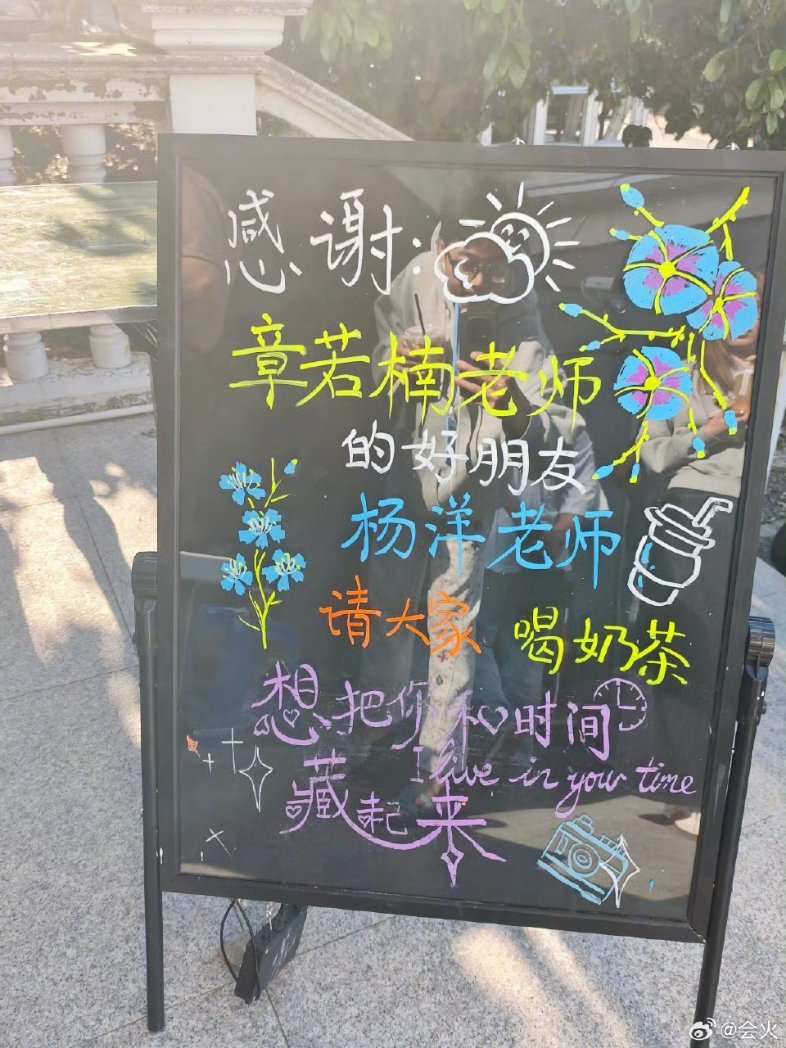 感谢:
章若楠老师
的好朋友
杨洋老师
请大家 喝奶茶
想把你和时间
I live in your time
藏起来
@会火